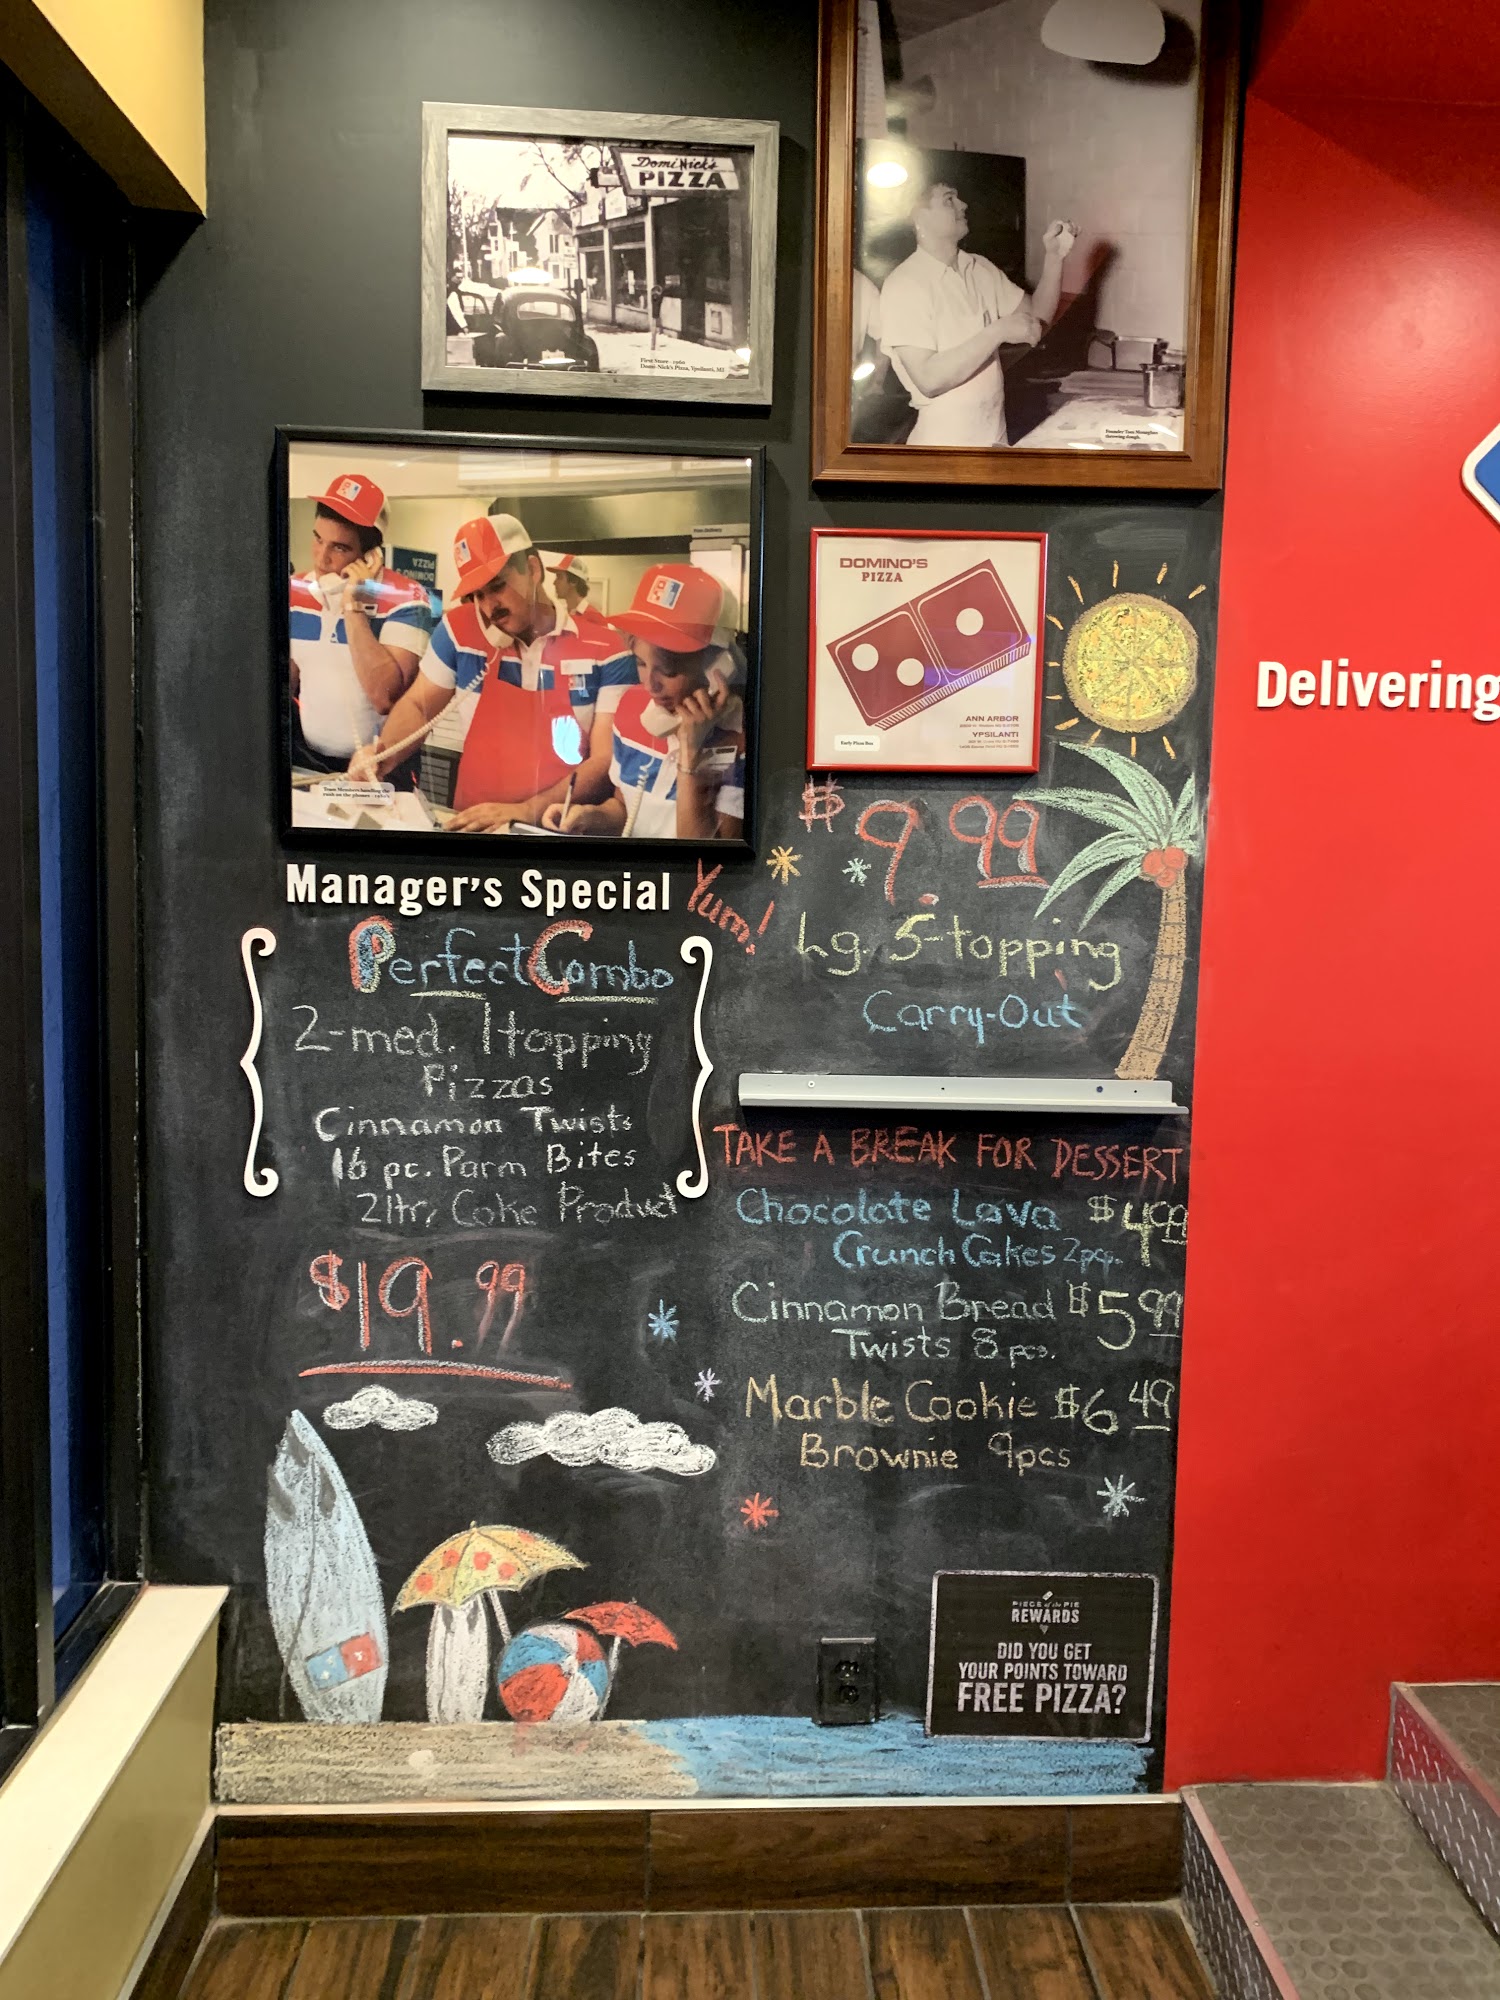 DomiNick's
PIZZA
First Store - 1960
Domi-Nick's Pizza, Ypsilanti, MI
Founder Tom Monaghan
throwing dough.
DOMINO'S
PIZZA
Team Members handling the
rush on the phones - 1980's
DOMINO'S
PIZZA
ANN ARBOR
YPSILANTI
Early Pizza Box
Delivering
Manager's Special
Yum!
Perfect Combo
2-med. 1 topping
Pizzas
Cinnamon Twists
16 pc. Parm Bites
2ltr. Coke Product
$19.99
$9.99
Lg. 5-topping
Carry-Out
TAKE A BREAK FOR DESSERT
Chocolate Lava $4.99
Crunch Cakes 2pcs.
Cinnamon Bread $5.99
Twists 8 pcs.
Marble Cookie $6.49
Brownie 9pcs
PIECE of the PIE
REWARDS
DID YOU GET
YOUR POINTS TOWARD
FREE PIZZA?